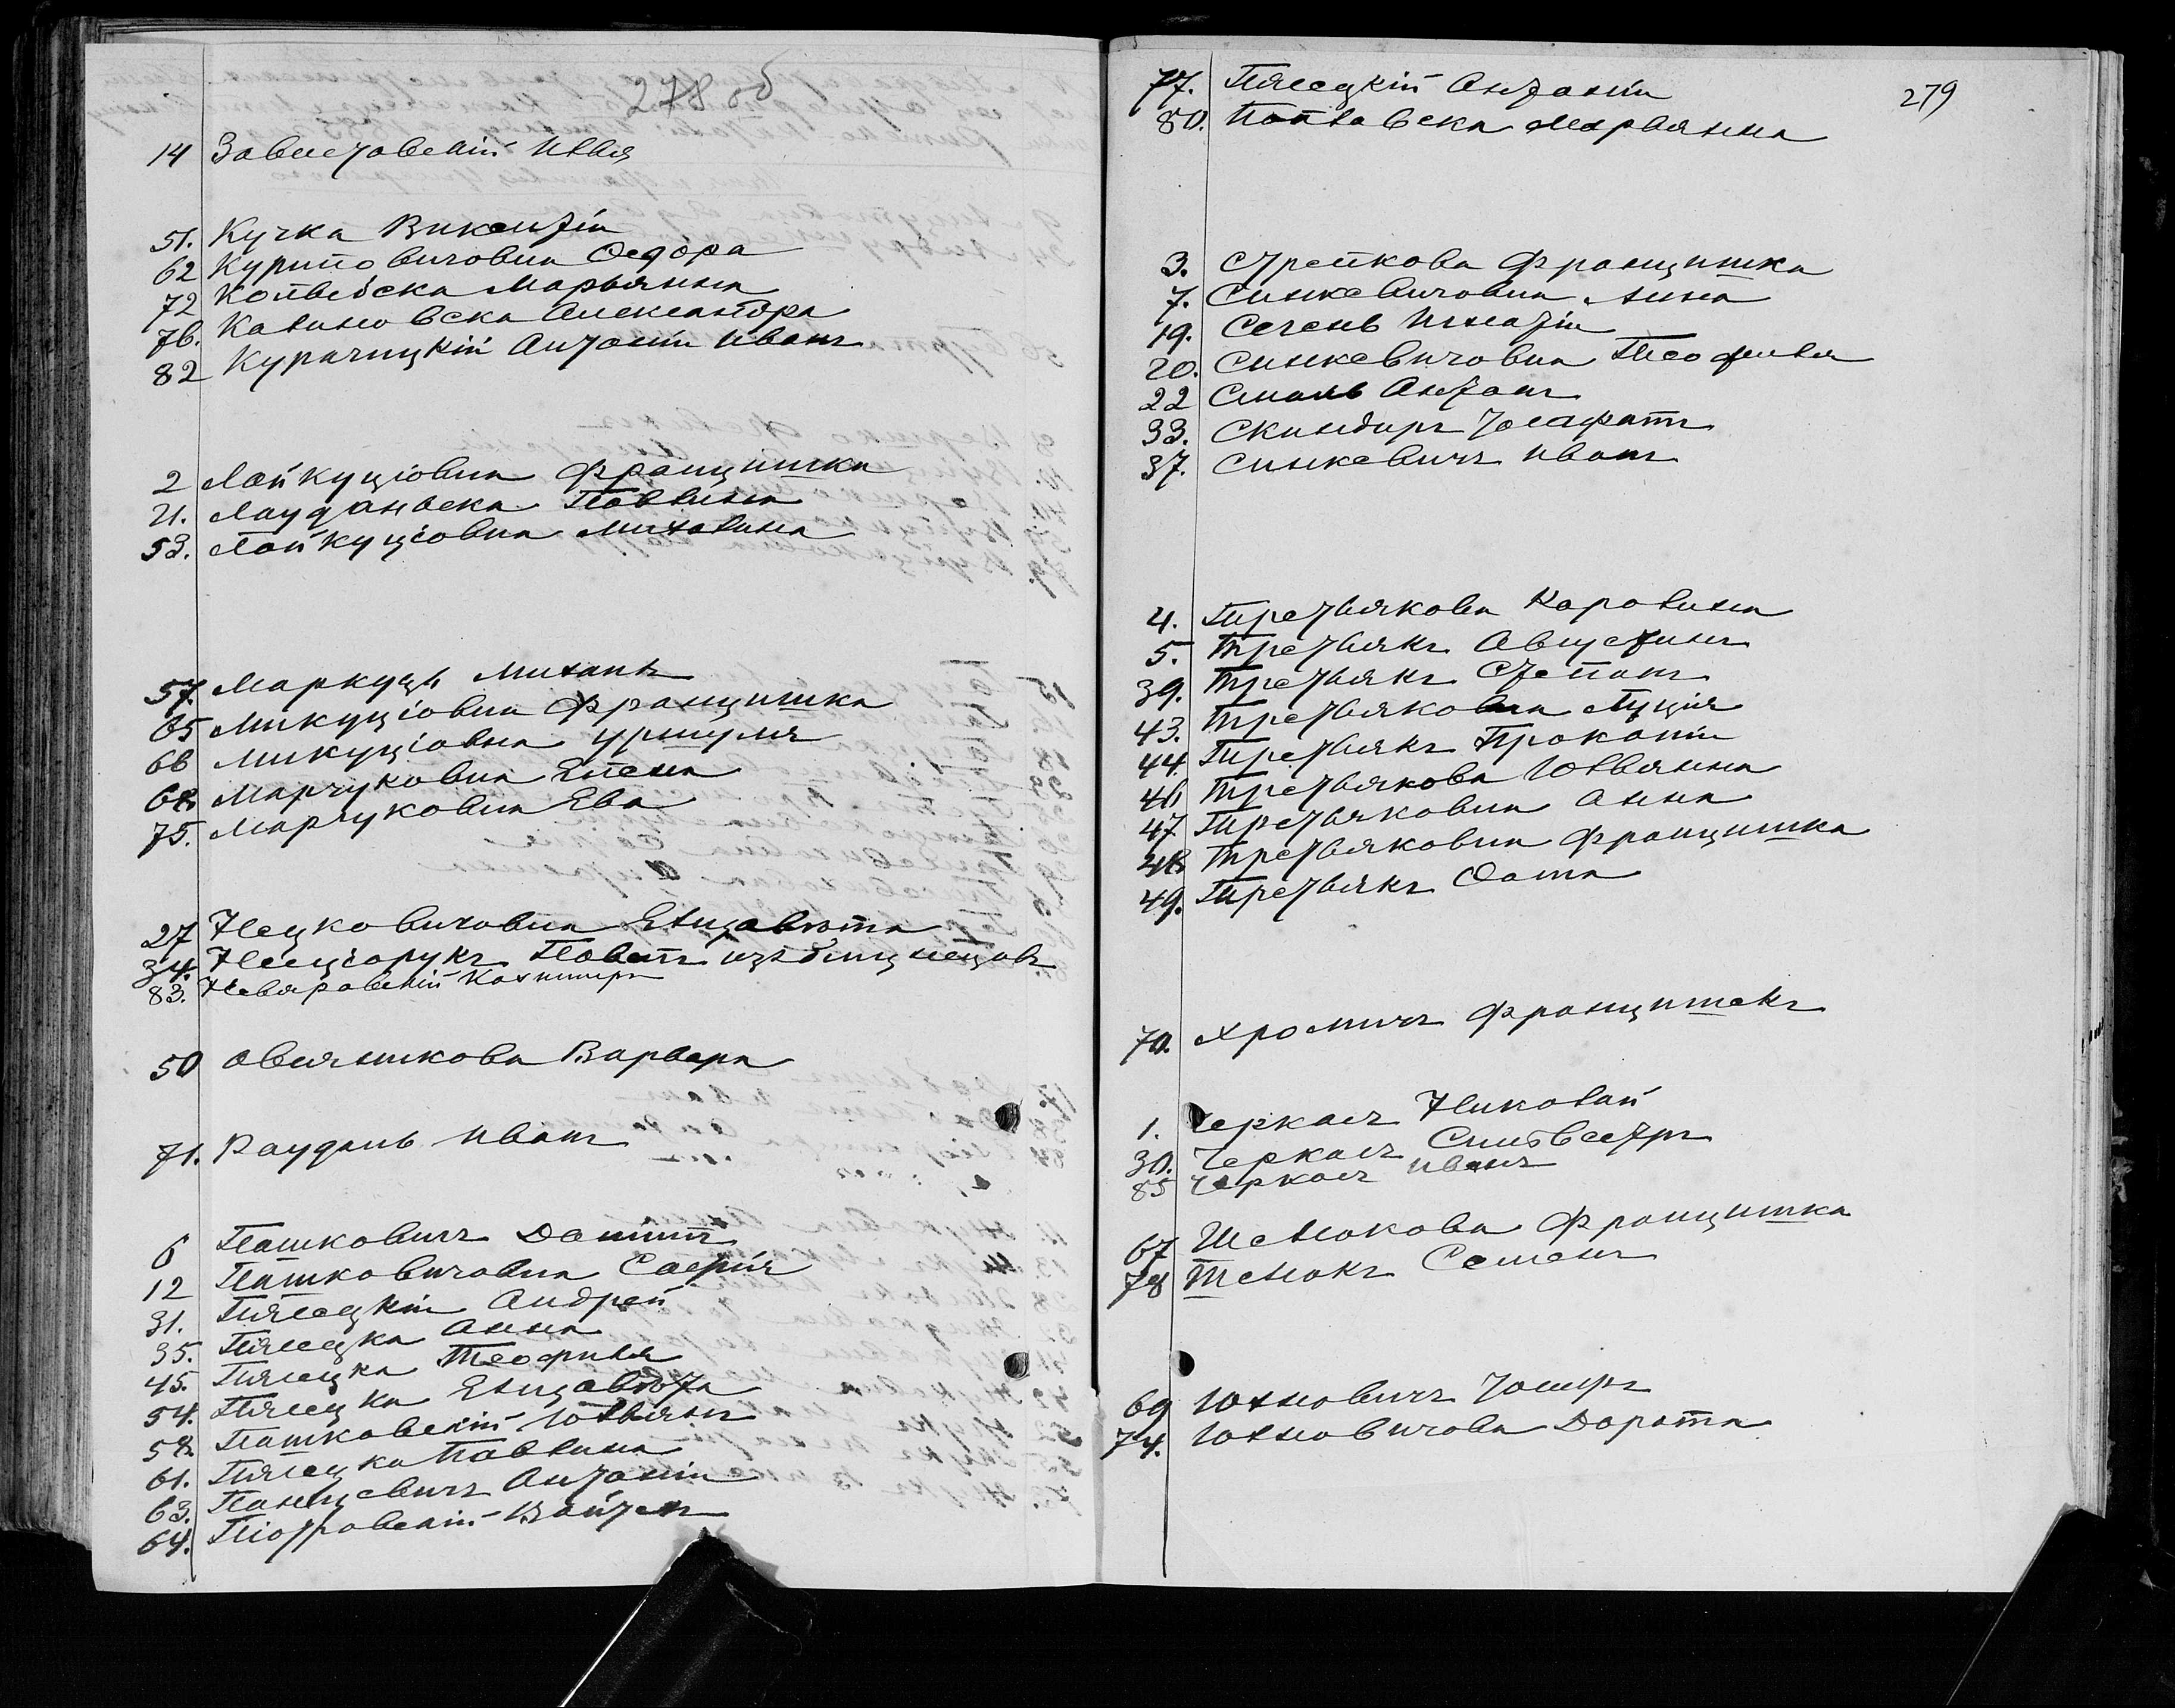 278 об
14 Завистовскій Илія
51. Кучка Викентій
62 Куриловичовна Ѳедора
72 Копвейска Марьянна
76. Калиновска Александра
82 Куричицкій Антоній Иванъ
2 Лойкуціовна Францишка
21. Лаудоньска Павлина
53. Лойкуціовна Михалина
57. Маркуць Михаилъ
65 Микуціовна Францишка
66 Микуціовна Уршуля
68 Марчуковна Елена
75. Марчуковна Ева
27 Нецковичовна Елизавета
34. Несціорукъ Павелъ изъ близнецовъ
83. Невяровскій Казимиръ
50 Овсянникова Варвара
71. Раудонь Иванъ
6 Пашковичъ Даніилъ
12 Пашковичовна Софія
31. Пясецкій Андрей
35. Пясецка Анна
45. Пясецка Теофиля
54. Пясецка Елизавета
58. Пашковскій Юльянъ
61. Пясецка Павлина
63. Панцевичъ Антоній
64. Піотровскій Войтехъ
279
77. Пясецкій Антоній
80. Поплавска Марьянна
3. Стрелкова Францишка
7. Синкевичовна Анна
19. Сечень Игнатій
20. Синкевичовна Теофиля
22 Сполъ Антонъ
33. Скиндиръ Іосафатъ
37. Синкевичъ Иванъ
4. Третьякова Каролина
5. Третьякъ Августинъ
39. Третьякъ Степанъ
43. Третьяковна Луція
44. Третьякъ Прокопій
46 Третьякова Юльянна
47 Третьяковна Анна
48 Третьяковна Францишка
49. Третьякъ Ѳома
70. Хромичъ Францишекъ
1. Черкасъ Николай
30. Черкасъ Сильвестръ
85 Черкасъ Иванъ
67 Шелюкова Францишка
78 Шелюкъ Семенъ
69 Юхновичъ Іосифъ
74. Юхновичова Дорота